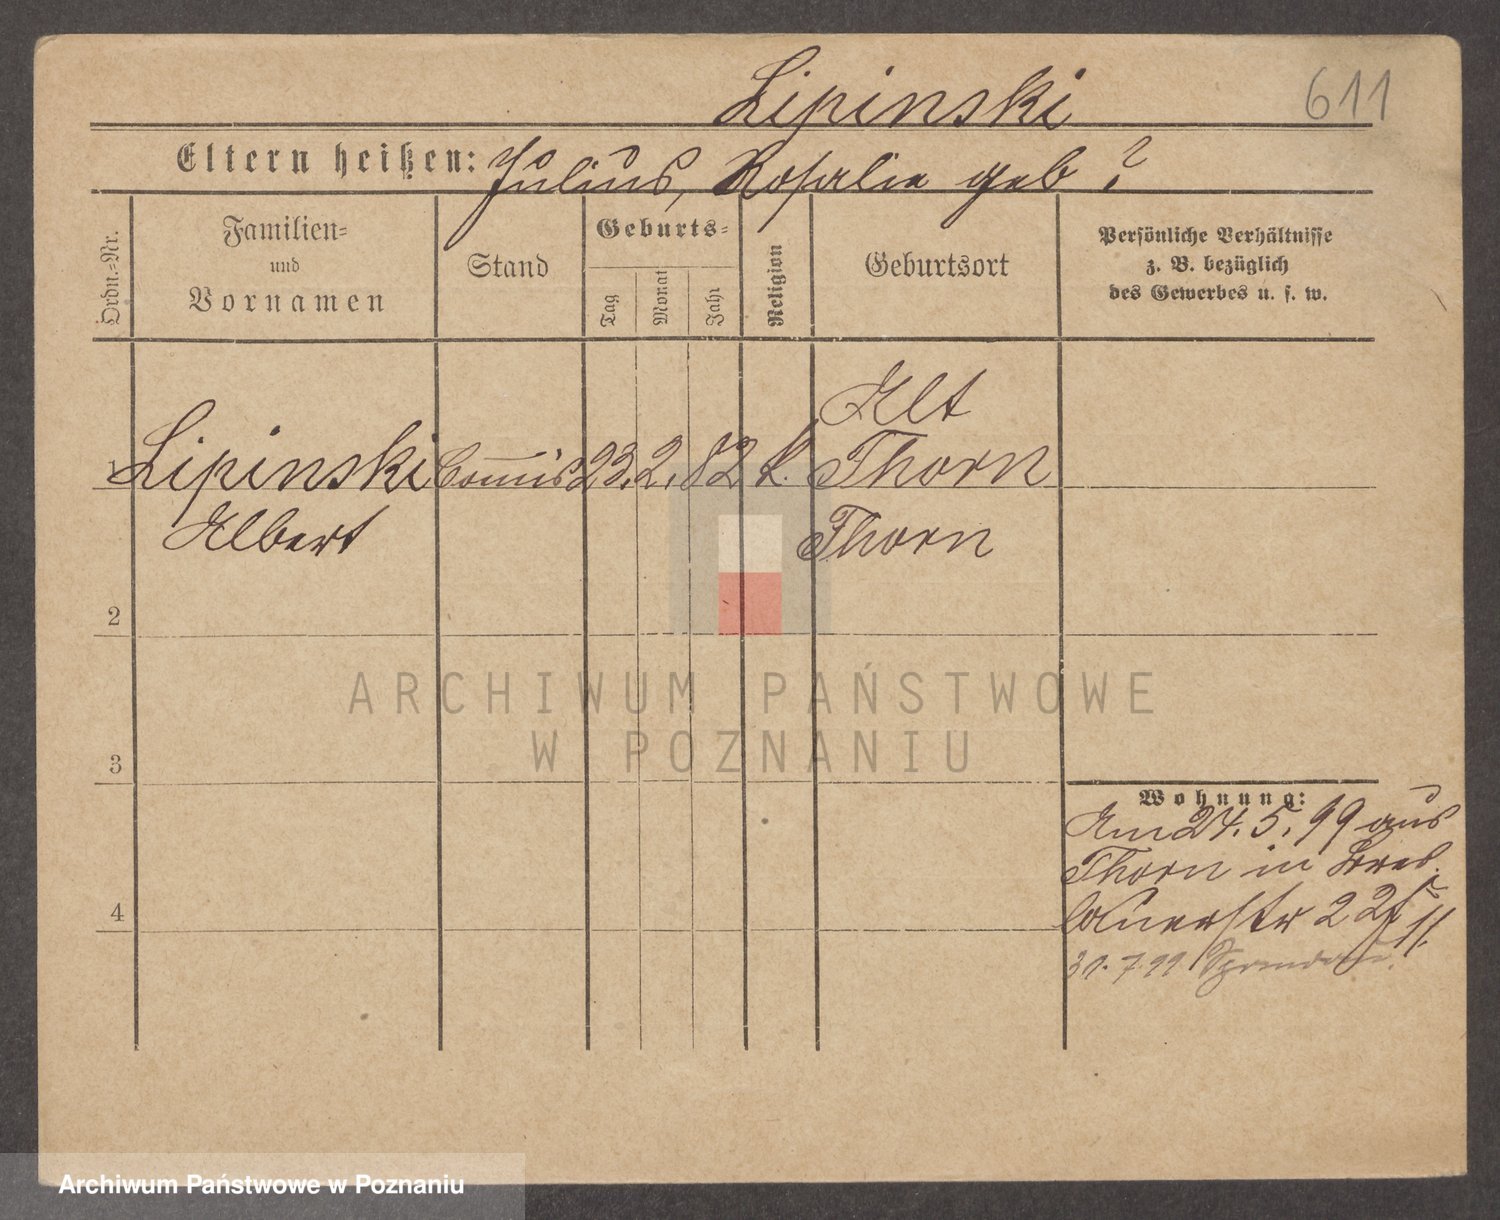 Lipinski
611
Eltern heißen: Julius, Rosalie geb ?
Ordn.=Nr.
Familien=
und
Vornamen
Stand
Geburts=
Tag
Monat
Jahr
Religion
Geburtsort
Persönliche Verhältnisse
z. B. bezüglich
des Gewerbes u. s. w.
Alt
1 Lipinski Commis 23. 2. 82 k. Thorn
Albert Thorn
2
3
4
Wohnung:
Am 24. 5. 99 aus
Thorn in
31. 7 99 Spandau.
ARCHIWUM PAŃSTWOWE
W POZNANIU
Archiwum Państwowe w Poznaniu